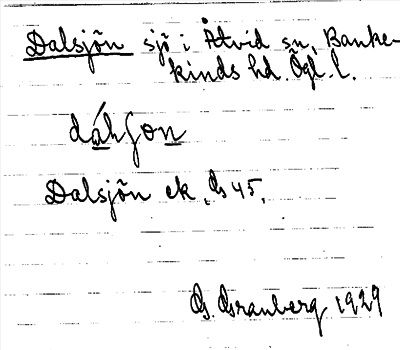 Dalsjön sjö i Åtvid sn, Banke-
kinds hd. Ögl. l.
dáhʃon
Dalsjön ek, Gs 45,
G. Granberg 1929